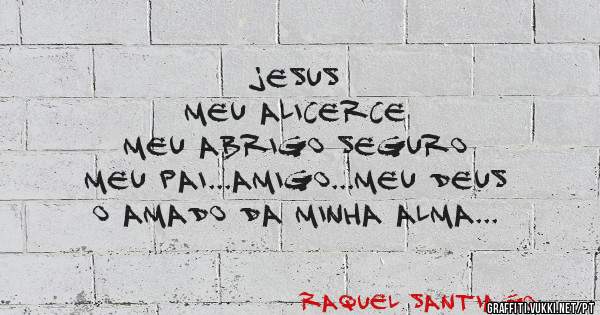 JESUS
MEU ALICERCE
MEU ABRIGO SEGURO
MEU PAI...AMIGO...MEU DEUS
O AMADO DA MINHA ALMA...
RAQUEL SANTIAGO
GRAFFITI.VUKKI.NET/PT